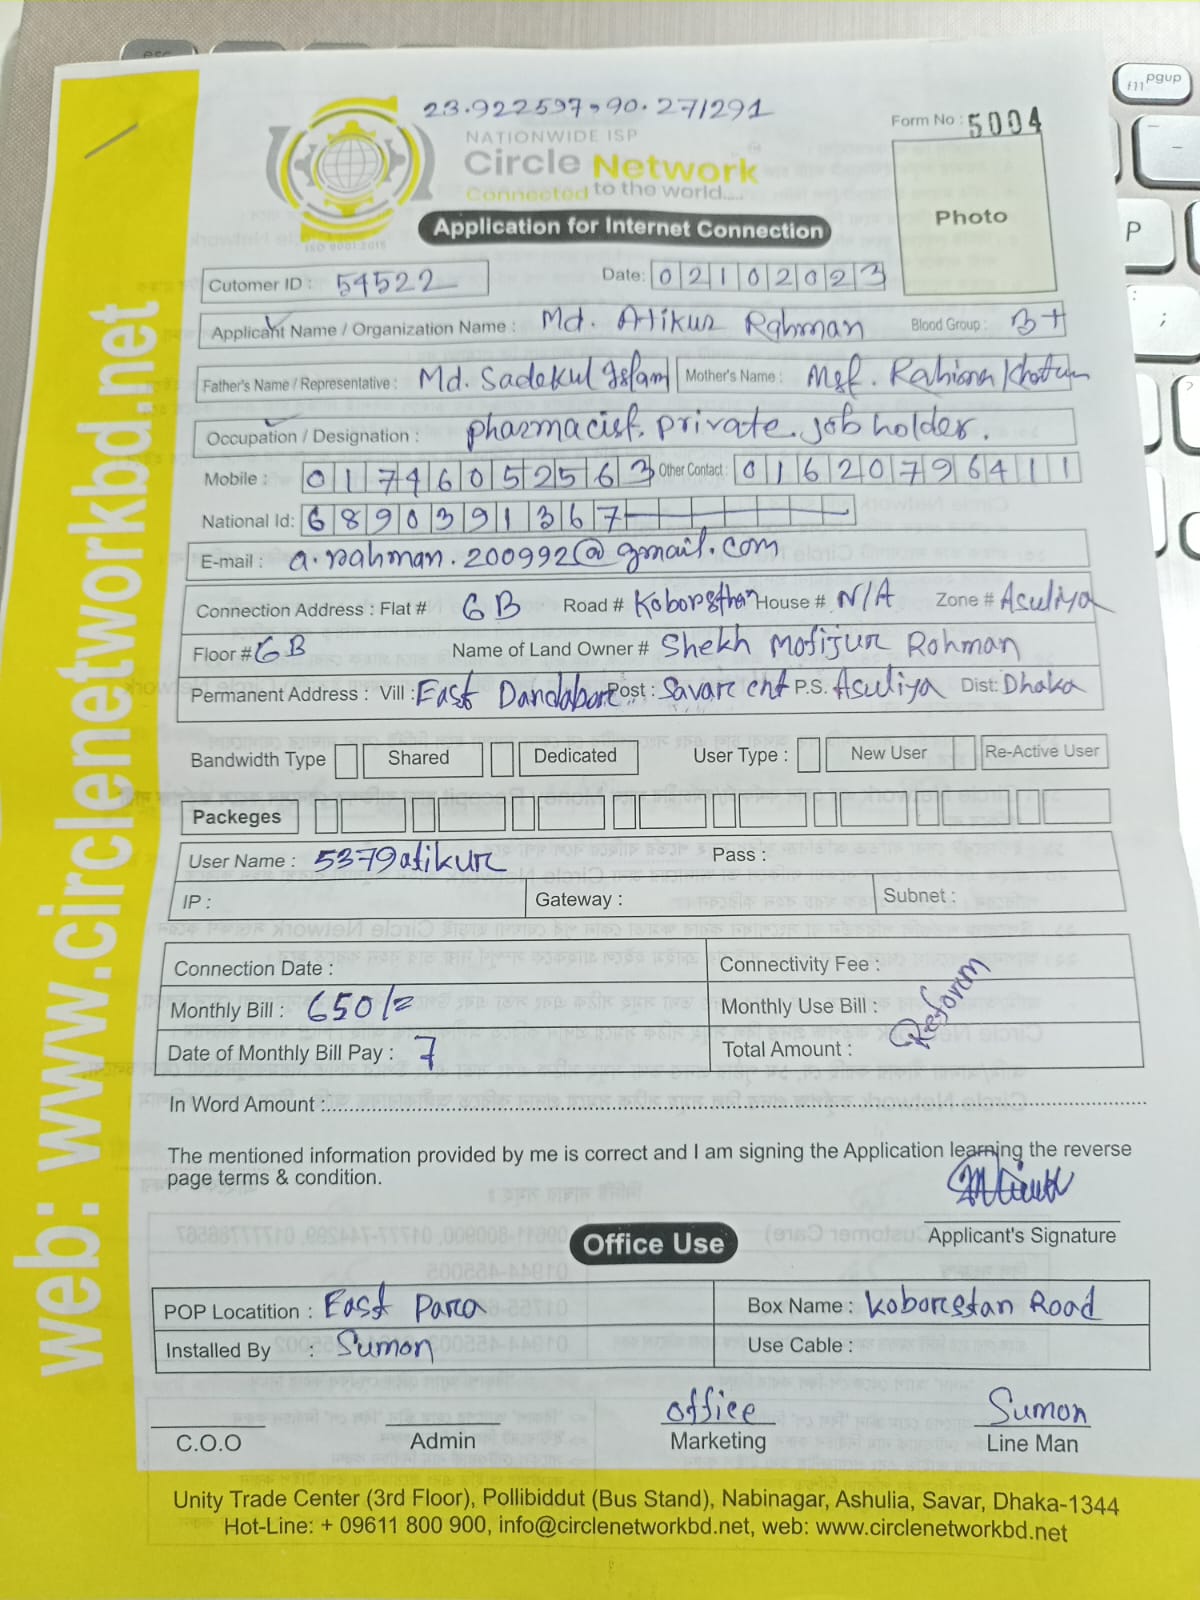 23.922597, 90.271291
NATIONWIDE ISP
Form No : 5004
Circle Network
Connected to the world.....
Photo
Application for Internet Connection
ISO 9001:2015
Cutomer ID : 54522 Date: 02102023
Applicant Name / Organization Name : Md. Atikur Rahman Blood Group : B+
Father's Name / Representative : Md. Sadekul Islam Mother's Name : Mst. Rahima Khatun
Occupation / Designation : pharmacist. private. job holder.
Mobile : 01746052563 Other Contact : 01620796411
National Id: 6890391367
E-mail : a.rahman.200992@gmail.com
Connection Address : Flat # GB Road # Koborsthan House # N/A Zone # Asuliya
Floor # GB Name of Land Owner # Shekh Mofijur Rohman
Permanent Address : Vill : East Dandabor Post : Savar cnt P.S. Asuliya Dist: Dhaka
Bandwidth Type Shared Dedicated User Type : New User Re-Active User
Packeges
User Name : 5379atikur Pass :
IP : Gateway : Subnet :
Connection Date : Connectivity Fee :
Monthly Bill : 650/= Monthly Use Bill :
Reform
Date of Monthly Bill Pay : 7 Total Amount :
In Word Amount :
The mentioned information provided by me is correct and I am signing the Application learning the reverse
page terms & condition.
Applicant's Signature
Office Use
POP Locatition : East Para Box Name : Koborstan Road
Installed By : Sumon Use Cable :
office Sumon
C.O.O Admin Marketing Line Man
Unity Trade Center (3rd Floor), Pollibiddut (Bus Stand), Nabinagar, Ashulia, Savar, Dhaka-1344
Hot-Line: + 09611 800 900, info@circlenetworkbd.net, web: www.circlenetworkbd.net
web: www.circlenetworkbd.net
esc
f11 pgup
P
;